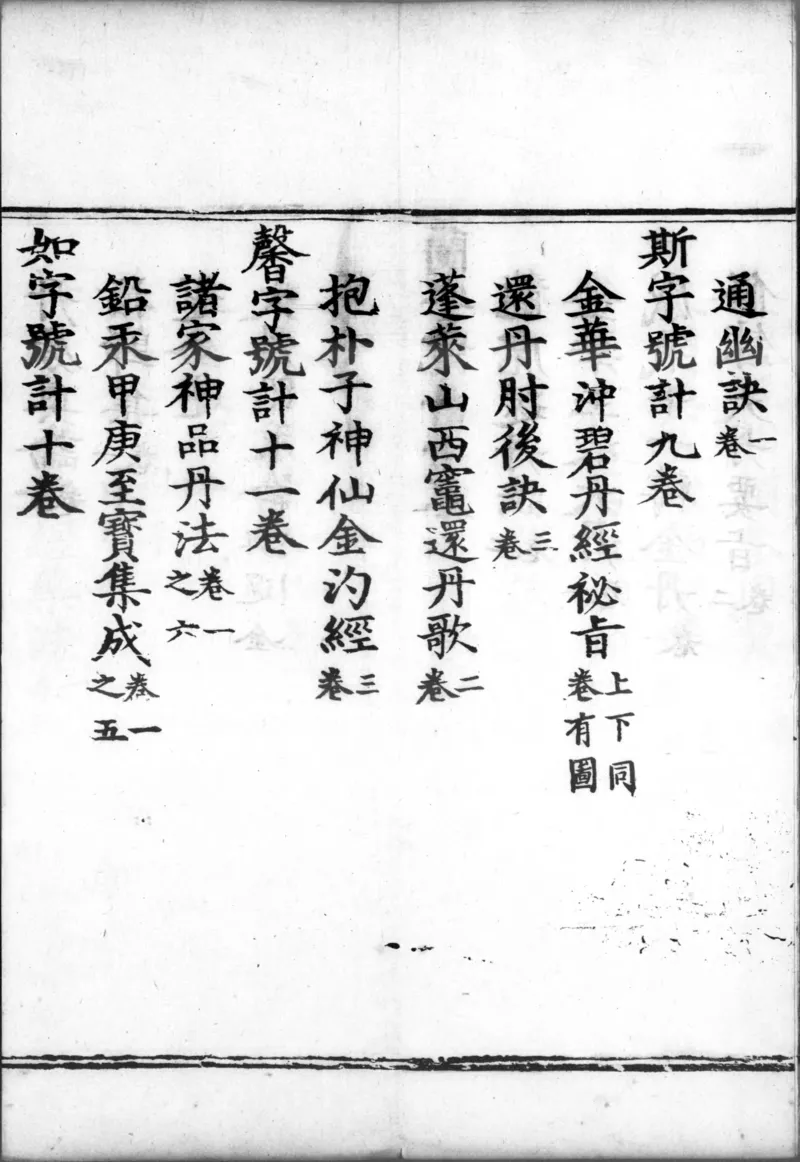 通幽訣一卷
斯字號計九卷
金華沖碧丹經祕旨上下同卷有圖
還丹肘後訣三卷
蓬萊山西竈還丹歌二卷
抱朴子神仙金汋經三卷
馨字號計十一卷
諸家神品丹法卷一之六
鉛汞甲庚至寶集成卷一之五
如字號計十卷